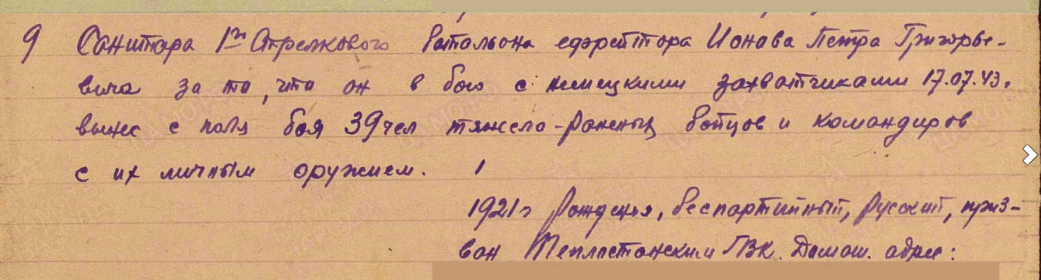 9 Санитара 1го Стрелкового батальона ефрейтора Ионова Петра Григорье-
вича за то, что он в бою с немецкими захватчиками 17.07.43.
вынес с поля боя 39 чел тяжело-раненых бойцов и командиров
с их личным оружием.
1921г рождения, беспартийный, русский, приз-
ван Теплостанским РВК. Домаш. адрес: